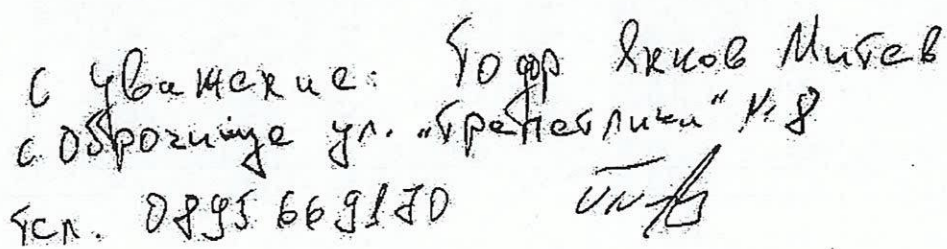 С уважение: Тодор Янков Митев
с Оброчище ул. „Трепетлики“ № 8
тел. 0895 669170